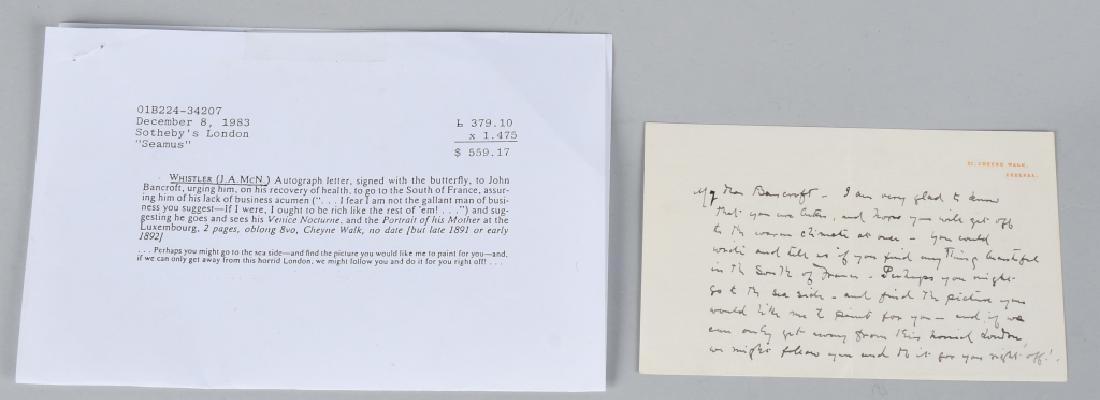 01B224-34207
December 8, 1983
Sotheby's London
"Seamus"
Ł 379.10
x 1.475
$ 559.17
WHISTLER (J. A. MCN.) Autograph letter, signed with the butterfly, to John
Bancroft, urging him, on his recovery of health, to go to the South of France, assur-
ing him of his lack of business acumen (“. . . I fear I am not the gallant man of busi-
ness you suggest—If I were, I ought to be rich like the rest of 'em! . . .”) and sug-
gesting he goes and sees his Venice Nocturne, and the Portrait of his Mother at the
Luxembourg, 2 pages, oblong 8vo, Cheyne Walk, no date [but late 1891 or early
1892]
. . . Perhaps you might go to the sea side—and find the picture you would like me to paint for you—and,
if we can only get away from this horrid London, we might follow you and do it for you right off! . . .
CHEYNE WALK,
CHELSEA.
My dear Bancroft - I am very glad to know
that you are better, and hope you will get off
to the warm climate at once - You could
write and tell us if you find any thing beautiful
in the South of France - Perhaps you might
go to the sea side - and find the picture you
would like me to paint for you - and, if we
can only get away from this horrid London,
we might follow you and do it for you right off!